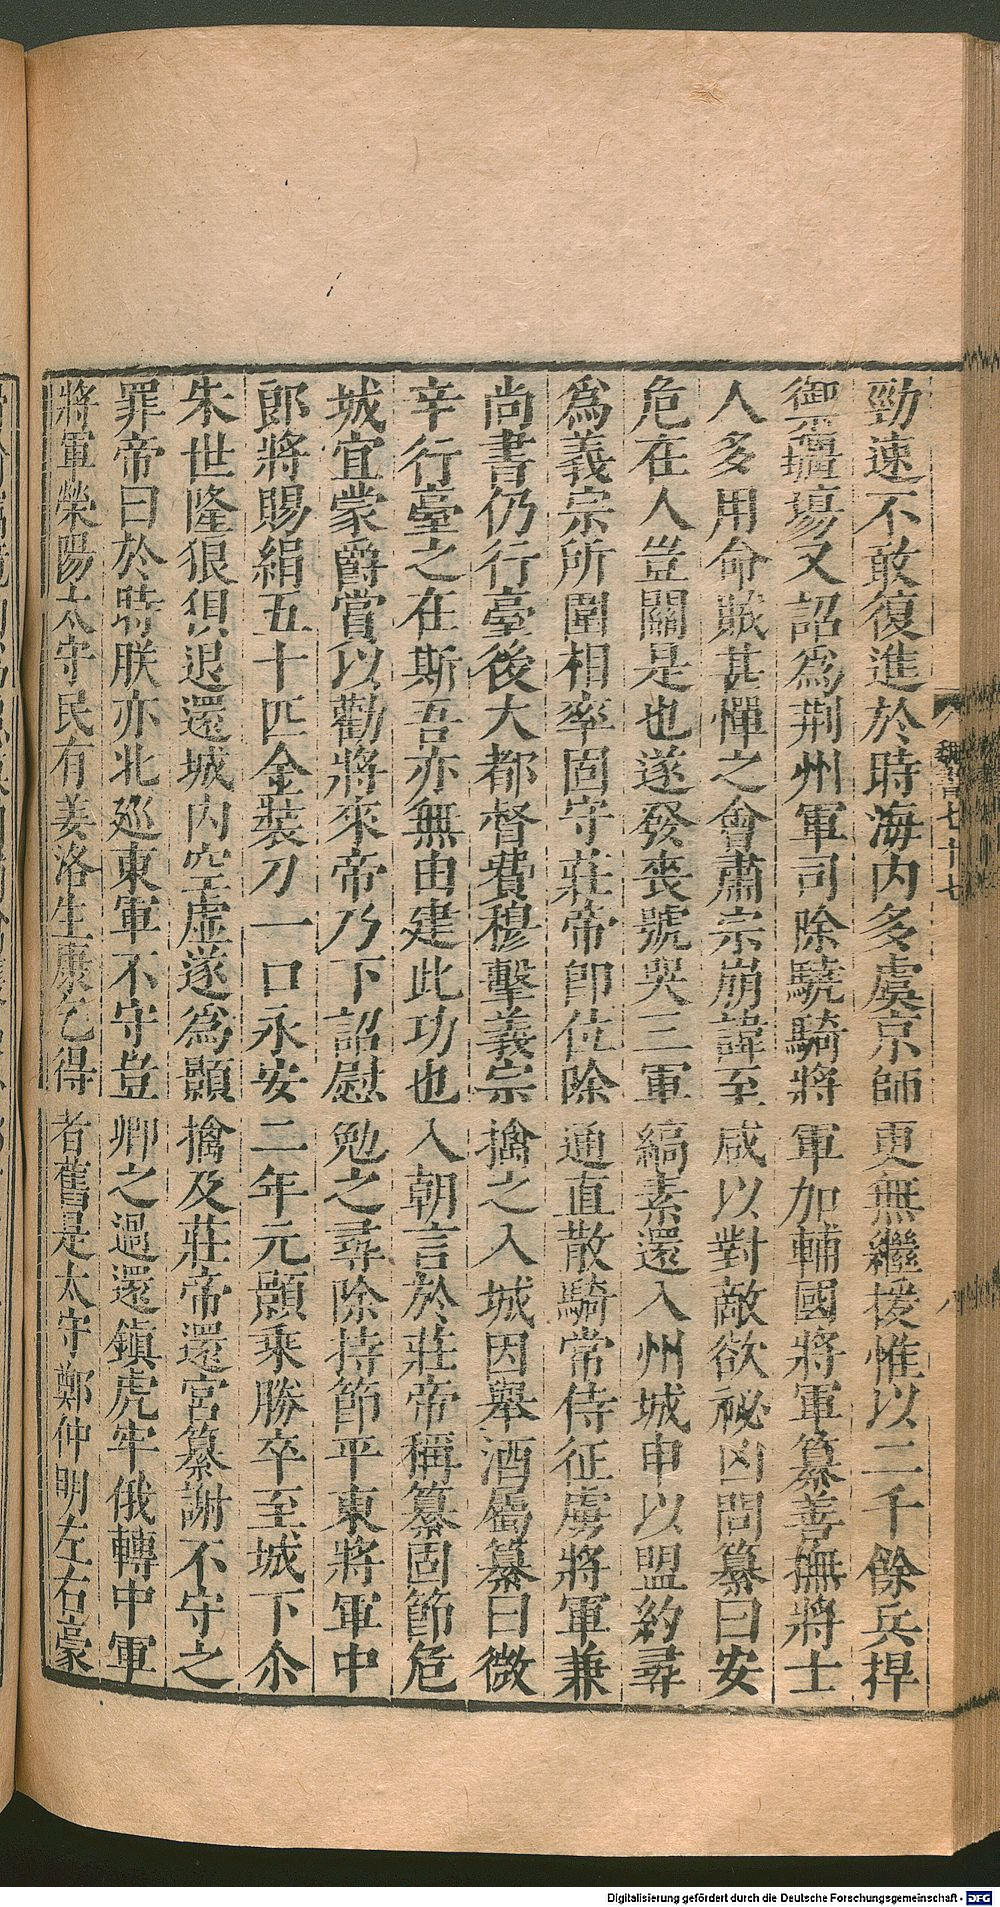 勁速不敢復進於時海内多虞京師更無繼援惟以二千餘兵捍
禦疆場又詔爲荆州軍司除驍騎將軍加輔國將軍纂善撫將士
人多用命賊甚憚之會肅宗崩諱至咸以對敵欲祕凶問纂曰安
危在人豈關是也遂發喪號哭三軍縞素還入州城申以盟約尋
爲義宗所圍相率固守莊帝即位除通直散騎常侍征虜將軍兼
尚書仍行臺後大都督費穆擊義宗擒之入城因舉酒屬纂曰微
辛行臺之在斯吾亦無由建此功也入朝言於莊帝稱纂固節危
城宜蒙爵賞以勸將來帝乃下詔慰勉之尋除持節平東將軍中
郎將賜絹五十匹金裝刀一口永安二年元顥乘勝卒至城下尒
朱世隆狼狽退還城内空虛遂爲顥擒及莊帝還宮纂謝不守之
罪帝曰於時朕亦北巡東軍不守豈卿之過還鎮虎牢俄轉中軍
將軍滎陽太守民有姜洛生康乞得者舊是太守鄭仲明左右豪
魏書七十七
八
Digitalisierung gefördert durch die Deutsche Forschungsgemeinschaft - DFG